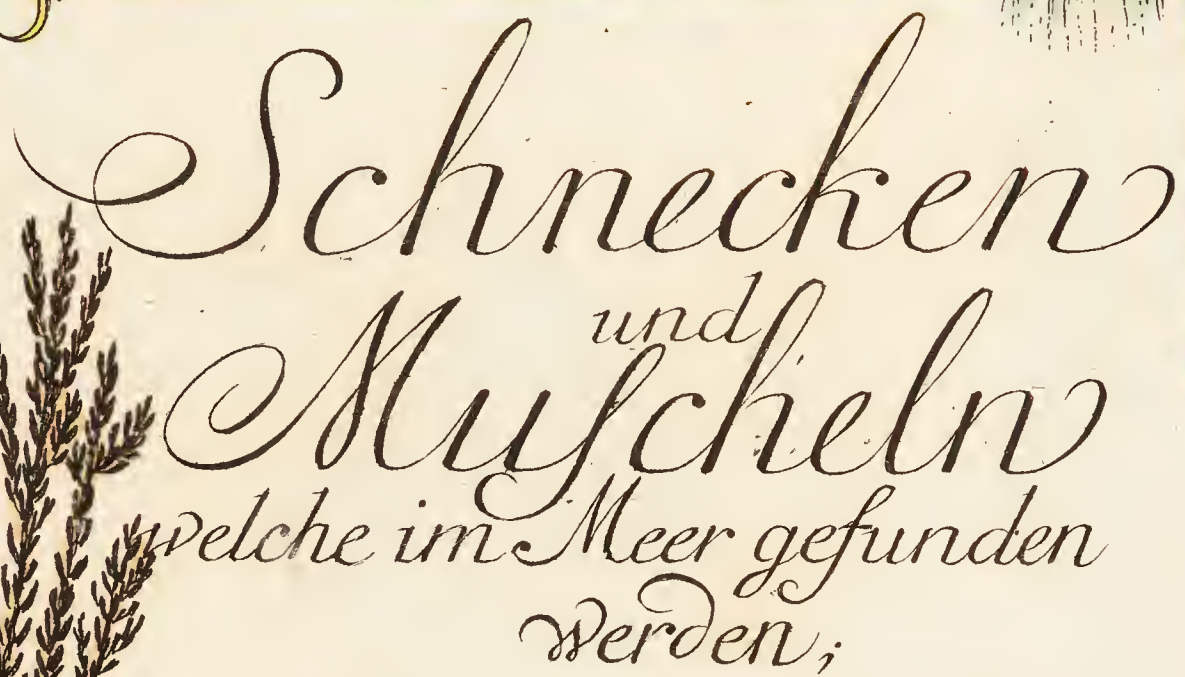 Schnecken
und
Muſcheln
welche im Meer gefunden
werden;